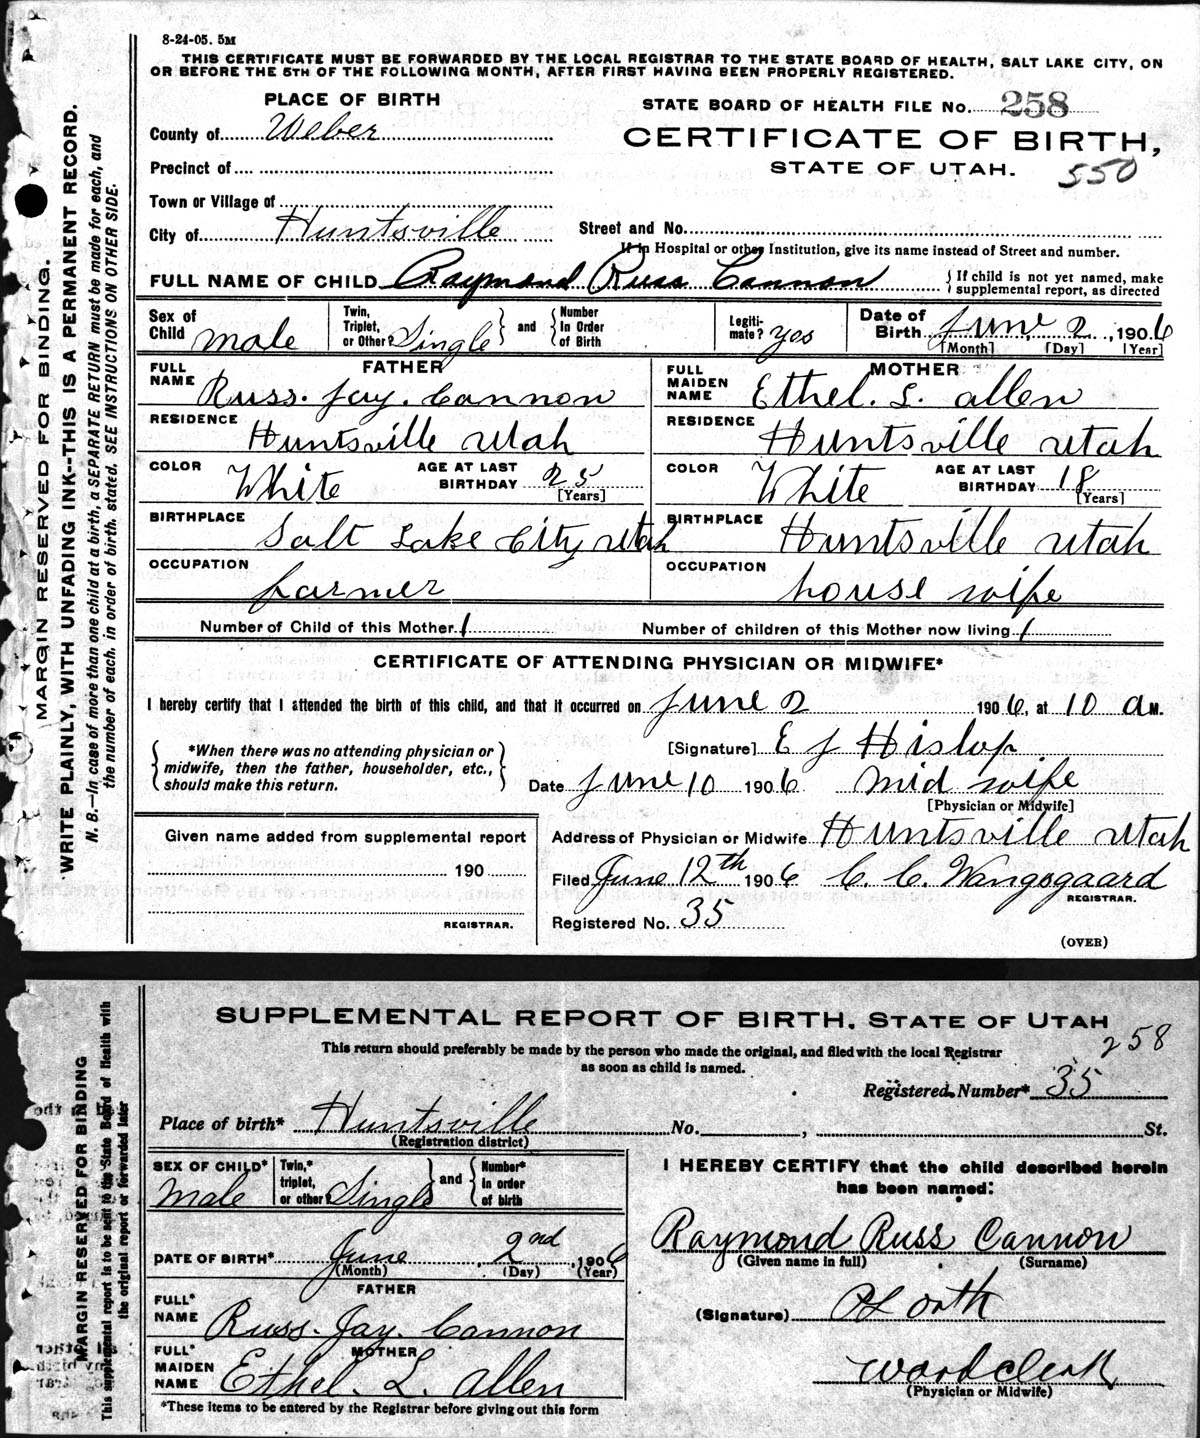 8-24-05. 5M
THIS CERTIFICATE MUST BE FORWARDED BY THE LOCAL REGISTRAR TO THE STATE BOARD OF HEALTH, SALT LAKE CITY, ON
OR BEFORE THE 5TH OF THE FOLLOWING MONTH, AFTER FIRST HAVING BEEN PROPERLY REGISTERED.
MARGIN RESERVED FOR BINDING.
WRITE PLAINLY, WITH UNFADING INK--THIS IS A PERMANENT RECORD.
N. B.—In case of more than one child at a birth, a SEPARATE RETURN must be made for each, and
the number of each, in order of birth, stated. SEE INSTRUCTIONS ON OTHER SIDE.
PLACE OF BIRTH
STATE BOARD OF HEALTH FILE No. 258
County of Weber
CERTIFICATE OF BIRTH,
STATE OF UTAH.
550
Precinct of
Town or Village of
City of Huntsville
Street and No.
If in Hospital or other Institution, give its name instead of Street and number.
FULL NAME OF CHILD Raymond Russ Cannon
If child is not yet named, make
supplemental report, as directed
Sex of Child male
Twin, Triplet, or Other? Single
and
Number In Order of Birth
Legiti-mate? yes
Date of Birth June 2, 1906
[Month] [Day] [Year]
FATHER
FULL NAME Russ. Jay. Cannon
MOTHER
FULL MAIDEN NAME Ethel. L. allen
RESIDENCE Huntsville Utah
RESIDENCE Huntsville Utah
COLOR White AGE AT LAST BIRTHDAY 25 [Years]
COLOR White AGE AT LAST BIRTHDAY 18 [Years]
BIRTHPLACE Salt Lake City Utah
BIRTHPLACE Huntsville Utah
OCCUPATION farmer
OCCUPATION house wife
Number of Child of this Mother 1
Number of children of this Mother now living 1
CERTIFICATE OF ATTENDING PHYSICIAN OR MIDWIFE*
I hereby certify that I attended the birth of this child, and that it occurred on June 2 1906, at 10 a M.
*When there was no attending physician or
midwife, then the father, householder, etc.,
should make this return.
[Signature] E J Hislop
Date June 10 1906 mid wife
[Physician or Midwife]
Given name added from supplemental report
190
REGISTRAR.
Address of Physician or Midwife Huntsville Utah
Filed June 12th 1906 C. C. Wangsgaard
REGISTRAR.
Registered No. 35
(OVER)
MARGIN RESERVED FOR BINDING
This supplemental report is to be sent to the State Board of Health with
the original report or forwarded later
SUPPLEMENTAL REPORT OF BIRTH. STATE OF UTAH
258
This return should preferably be made by the person who made the original, and filed with the local Registrar
as soon as child is named.
Registered Number* 35
Place of birth* Huntsville No. , St.
(Registration district)
SEX OF CHILD* Male
Twin,* triplet, or other? Single
and
Number* in order of birth
I HEREBY CERTIFY that the child described herein
has been named:
Raymond Russ Cannon
(Given name in full) (Surname)
DATE OF BIRTH* June, 2nd, 1906
(Month) (Day) (Year)
FATHER
FULL* NAME Russ. Jay. Cannon
(Signature)
MOTHER
FULL* MAIDEN NAME Ethel. L. Allen
ward clerk
(Physician or Midwife)
*These items to be entered by the Registrar before giving out this form